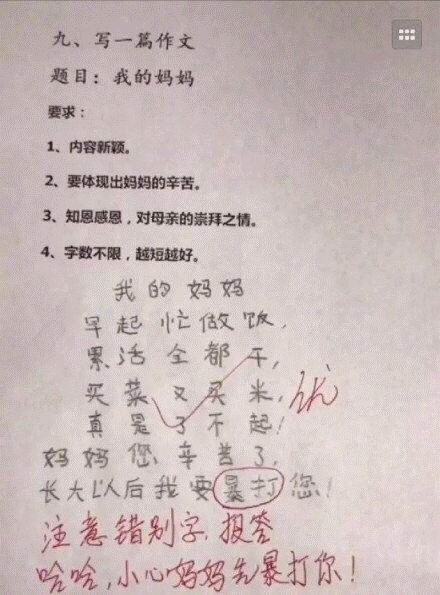 九、写一篇作文
题目：我的妈妈
要求：
1、内容新颖。
2、要体现出妈妈的辛苦。
3、知恩感恩，对母亲的崇拜之情。
4、字数不限，越短越好。
我的妈妈
早起忙做饭，
累活全都干，
买菜又买米，优
真是了不起！
妈妈您辛苦了，
长大以后我要暴打您！
注意错别字，报答
哈哈，小心妈妈先暴打你！